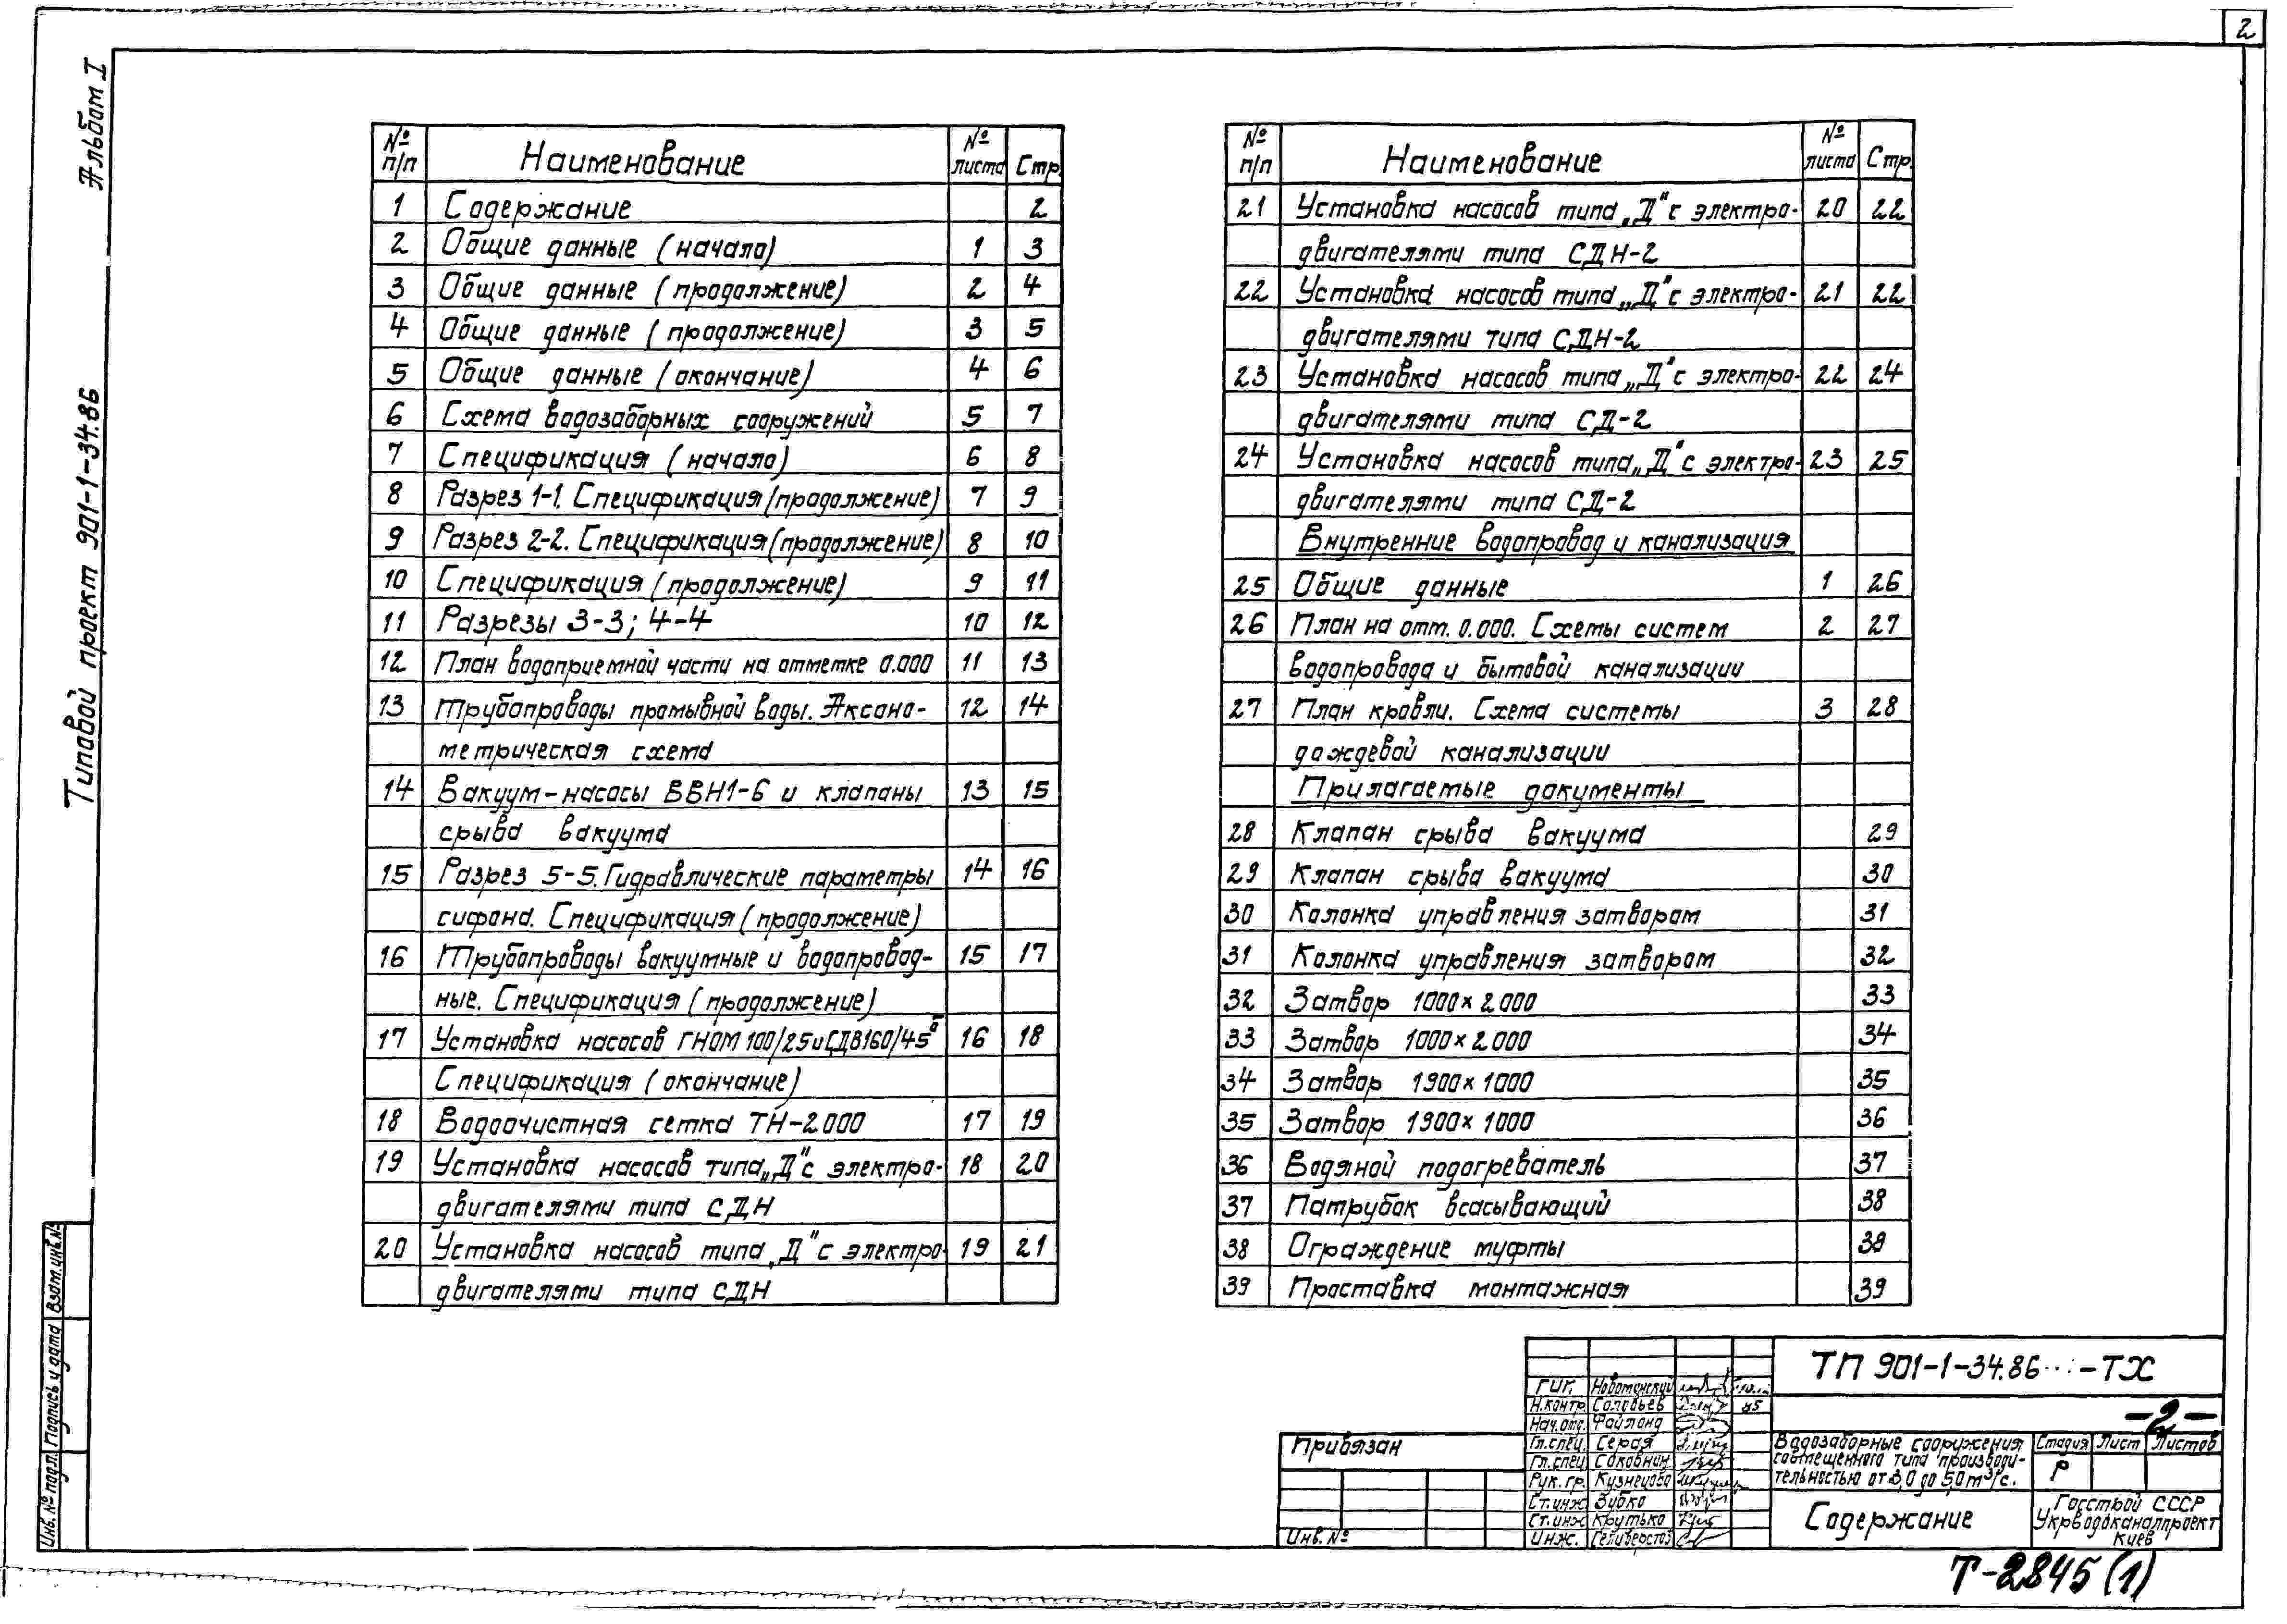 2
Альбом I
Типовой проект 901-1-34.86
№ п/п Наименование № листа Стр.
1 Содержание 2
2 Общие данные (начало) 1 3
3 Общие данные (продолжение) 2 4
4 Общие данные (продолжение) 3 5
5 Общие данные (окончание) 4 6
6 Схема водозаборных сооружений 5 7
7 Спецификация (начало) 6 8
8 Разрез 1-1. Спецификация (продолжение) 7 9
9 Разрез 2-2. Спецификация (продолжение) 8 10
10 Спецификация (продолжение) 9 11
11 Разрезы 3-3; 4-4 10 12
12 План водоприемной части на отметке 0.000 11 13
13 Трубопроводы промывной воды. Аксоно- 12 14
метрическая схема
14 Вакуум-насосы ВВН1-6 и клапаны 13 15
срыва вакуума
15 Разрез 5-5. Гидравлические параметры 14 16
сифона. Спецификация (продолжение)
16 Трубопроводы вакуумные и водопровод- 15 17
ные. Спецификация (продолжение)
17 Установка насосов ГНОМ 100/25 и СДВ160/45б 16 18
Спецификация (окончание)
18 Водоочистная сетка ТН-2000 17 19
19 Установка насосов типа „Д" с электро- 18 20
двигателями типа СДН
20 Установка насосов типа „Д" с электро- 19 21
двигателями типа СДН
№ п/п Наименование № листа Стр.
21 Установка насосов типа „Д" с электро- 20 22
двигателями типа СДН-2
22 Установка насосов типа „Д" с электро- 21 22
двигателями типа СДН-2
23 Установка насосов типа „Д" с электро- 22 24
двигателями типа СД-2
24 Установка насосов типа „Д" с электро- 23 25
двигателями типа СД-2
Внутренние водопровод и канализация
25 Общие данные 1 26
26 План на отм. 0.000. Схемы систем 2 27
водопровода и бытовой канализации
27 План кровли. Схема системы 3 28
дождевой канализации
Прилагаемые документы
28 Клапан срыва вакуума 29
29 Клапан срыва вакуума 30
30 Колонка управления затвором 31
31 Колонка управления затвором 32
32 Затвор 1000×2000 33
33 Затвор 1000×2000 34
34 Затвор 1900×1000 35
35 Затвор 1900×1000 36
36 Водяной подогреватель 37
37 Патрубок всасывающий 38
38 Ограждение муфты 38
39 Проставка монтажная 39
Взам. инв. №
Подпись и дата
Инв. № подл.
Привязан
Инв. №
ГИП
Н.контр. Соловьев 85
Нач. отд.
Гл. спец. Серая
Гл. спец.
Рук. гр. Кузнецова
Ст. инж. Зубко
Ст. инж. Крутько
Инж.
ТП 901-1-34.86 -ТХ
-2-
Водозаборные сооружения
совмещенного типа производи-
тельностью от 3,0 до 5,0 м³/с.
Стадия Лист Листов
Р
Содержание
Госстрой СССР
Укрводоканалпроект
Киев
Т-2845 (1)